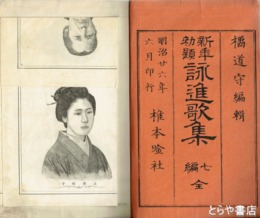 橘道守編輯
新年
勅題
詠進歌集
七編
全
明治廿六年
六月印行
椎本唫社
とらや書店